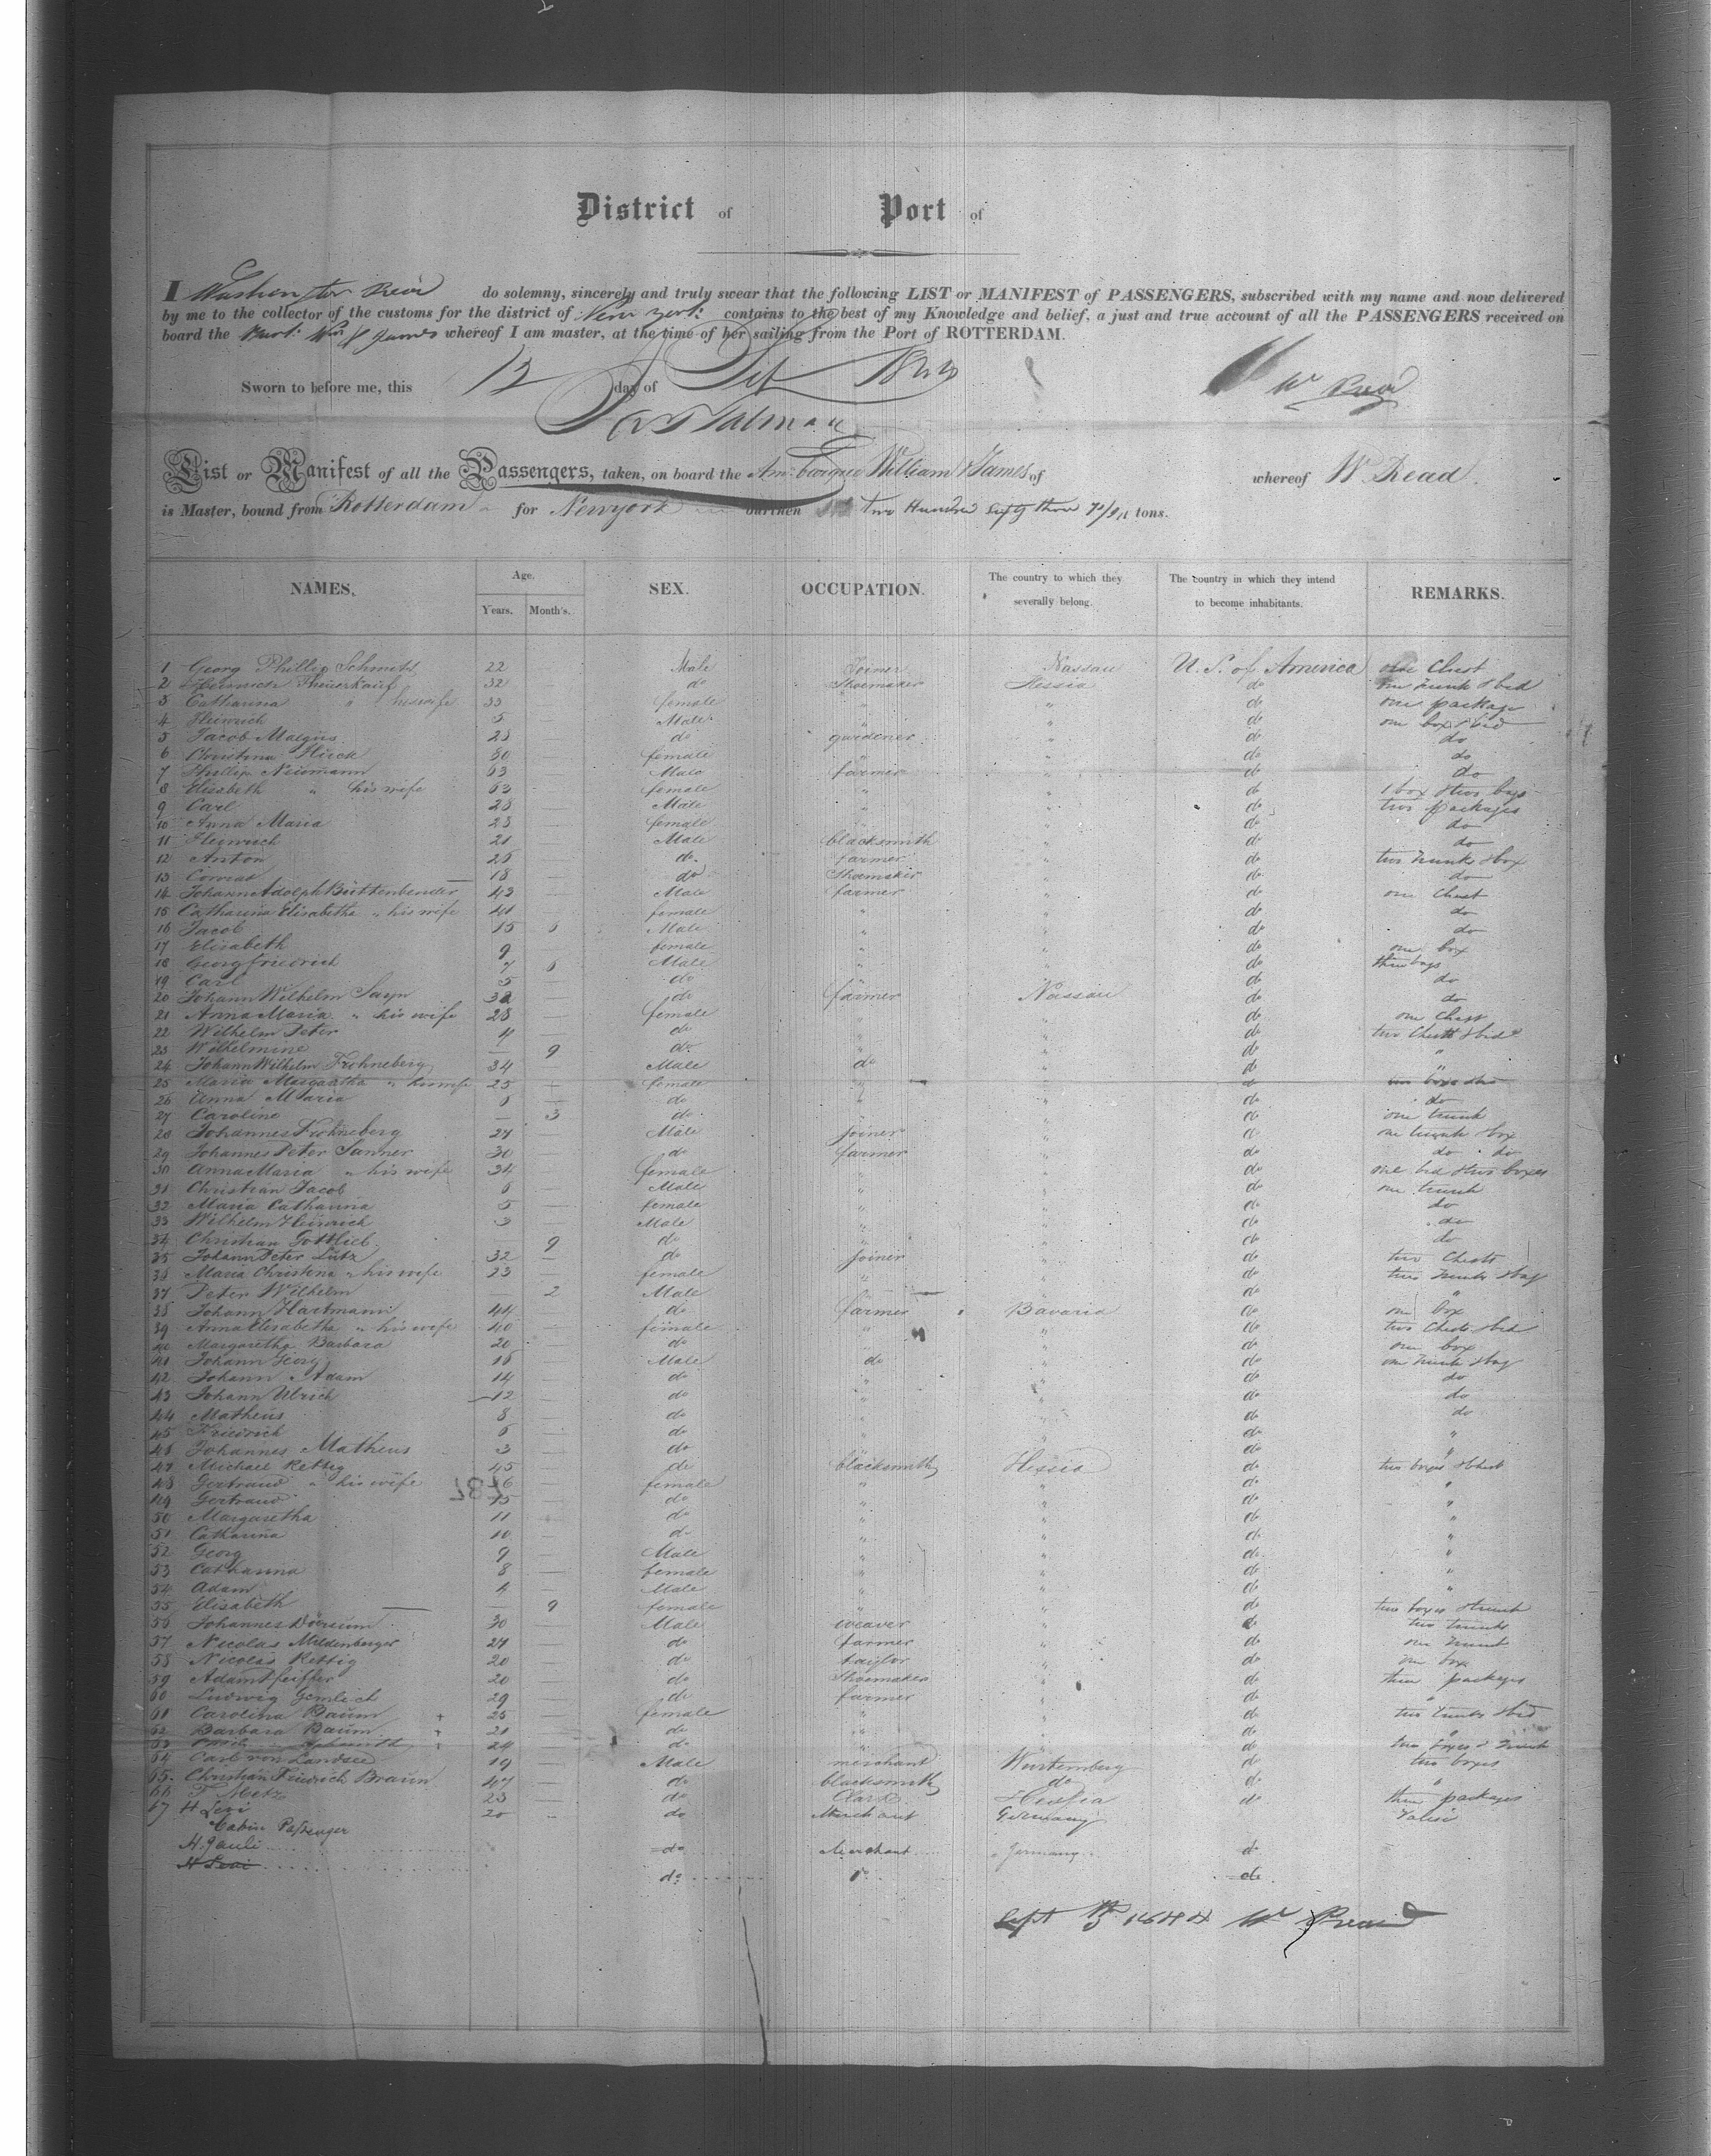 District of Port of
I Washington Read do solemny, sincerely and truly swear that the following LIST or MANIFEST of PASSENGERS, subscribed with my name and now delivered
by me to the collector of the customs for the district of New York contains to the best of my Knowledge and belief, a just and true account of all the PASSENGERS received on
board the Wm & James whereof I am master, at the time of her sailing from the Port of ROTTERDAM.
Sworn to before me, this 12 day of Sept W Read
List or Manifest of all the Passengers, taken, on board the William & James of whereof W Read.
is Master, bound from Rotterdam for Newyork burthen two Hundred sixty three tons.
NAMES. Age. SEX. OCCUPATION. The country to which they severally belong. The country in which they intend to become inhabitants. REMARKS.
Years. Month's.
1 Georg Phillip Schmidt 22 — Male Joiner Nassau U. S. of America one Chest
2 Heinrich Theuerkauf 32 — do Shoemaker Hessia do one trunk & bed
3 Catharina " his wife 33 — female " " do one package
4 Heinrich 5 — Male " " do one box & bed
5 Jacob Malgus 28 — do gardener " do do
6 Christina Huck — female " " do do
7 Phillip Neumann 63 — Male farmer " do do
8 Elisabeth " his wife 63 — female " " do 1 box & two bags
9 Carl 28 — Male " " do two packages
10 Anna Maria 23 — female " " do do
11 Heinrich 21 — Male blacksmith " do do
12 Anton 25 — do farmer " do two trunks & box
13 Conrad 18 — do Shoemaker " do do
14 Johann Adolph Büttenbender 43 — Male farmer " do one Chest
15 Catharina Elisabetha " his wife 41 — female " " do do
16 Jacob 15 6 Male " " do do
17 Elisabeth 9 female " " do one box
18 Georg Friedrich 7 6 Male " " do three bags
19 Carl 5 — do " " do do
20 Johann Wilhelm Sayn 32 — do farmer Nassau do do
21 Anna Maria " his wife 28 — female " " do one Chest
22 Wilhelm Peter 4 — do " " do two Chests & bed
23 Wilhelmine — 9 do " " do "
24 Johann Wilhelm Frohneberg 34 — Male do " do "
25 Maria Margaretha " his wife 25 — female " " do
26 Anna Maria 6 — do " " do do
27 Caroline — 3 do " " do one trunk
28 Johannes Frohneberg 27 — Male joiner " do one trunk & box
29 Johannes Peter Sanner 30 — do farmer " do do do
30 Anna Maria " his wife 34 — female " " do one bed & two boxes
31 Christian Jacob 6 — Male " " do one trunk
32 Maria Catharina 5 — female " " do do
33 Wilhelm Heinrich 3 — Male " " do do
34 Christian Gottlieb 9 do " " do do
35 Johann Peter Lutz 32 — do joiner " do two Chests
36 Maria Christina " his wife 23 — female " " do two trunks & bag
37 Peter Wilhelm — 2 Male " " do "
38 Johann Hartmann 44 — do farmer Bavaria do one box
39 Anna Elisabetha " his wife 40 — female " " do two Chests & bed
40 Margaretha Barbara 20 — do " " do one box
41 Johann Georg 16 — Male do " do one trunk & bag
42 Johann Adam 14 — do " " do do
43 Johann Ulrich 12 — do " " do do
44 Matheus 8 — do " " do do
45 Friedrich 6 — do " " do "
46 Johannes Matheus 3 — do " " do "
47 Michael Rettig 45 — do blacksmith Hessia do two boxes & chest
48 Gertraud " his wife 36 — female " " do "
49 Gertraud 15 — do " " do "
50 Margaretha 11 — do " " do "
51 Catharina 10 — do " " do "
52 Georg 9 — Male " " do "
53 Catharina 8 — female " " do "
54 Adam 4 — Male " " do "
55 Elisabeth — 9 female " " do two boxes & trunk
56 Johannes 30 — Male weaver " do two trunks
57 Nicolas Mildenberger 27 — do farmer " do one trunk
58 Nicolas Rettig 20 — do taylor " do one box
59 Adam Pfeiffer 20 — do Shoemaker " do three packages
60 Ludwig Gemlich 29 — do farmer " do "
61 Carolina Baum + 25 — female " " do two trunks & bed
62 Barbara Baum + 21 — do " " do "
63 + 24 — do " " do two boxes & trunk
64 Carl von Landsee 19 — Male merchant Wurtemberg do two boxes
65 Christian Friedrich Braun 47 — do blacksmith do do "
66 F. Metz 23 — do Clark Hessia do three packages
67 H Levi 20 do Merchant Germany
Cabin Passenger
H. Pauli do Merchant Germany do
H Levi do do do
Sept 1844 W Read